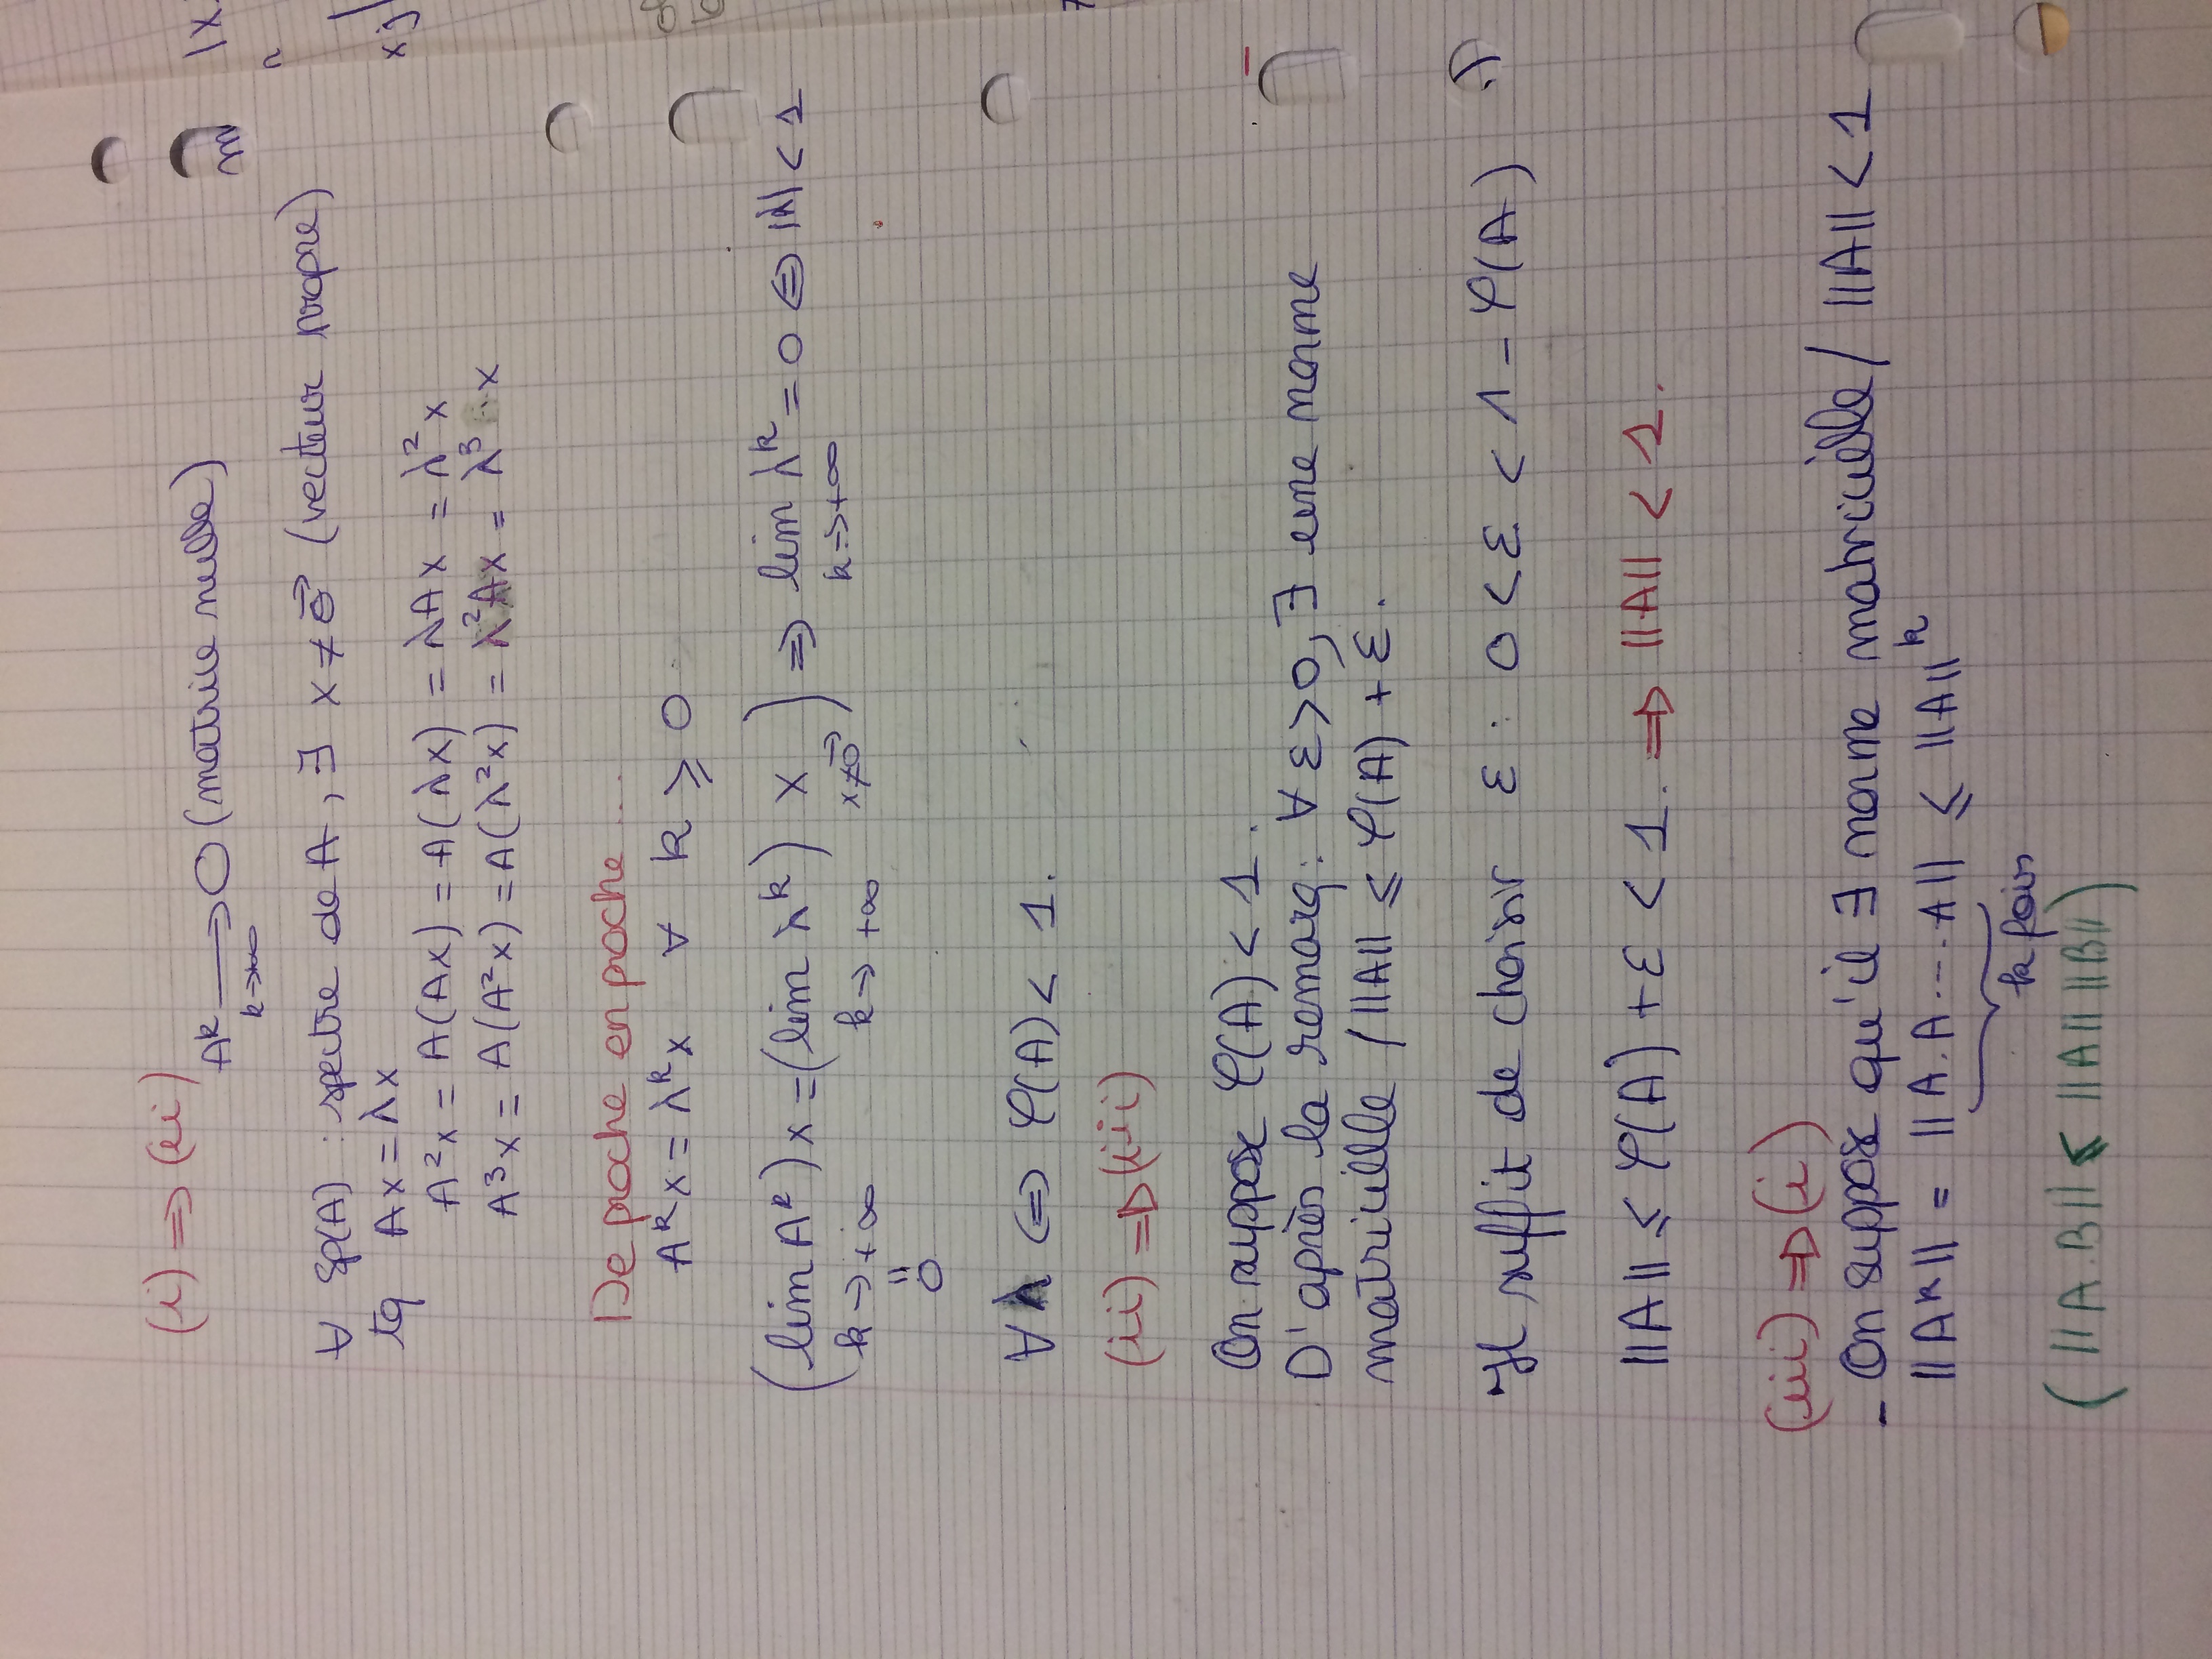 (i) ⇒ (ii)
A^k ⟶ O (matrice nulle)
k→+∞
∀ Sp(A) : spectre de A, ∃ x ≠ 0⃗ (vecteur propre)
tq Ax = λx
A²x = A(Ax) = A(λx) = λAx = λ²x
A³x = A(A²x) = A(λ²x) = λ²Ax = λ³ x
De proche en proche ...
A^k x = λ^k x ∀ k ⩾ 0
(lim A^k) x = (lim λ^k) x ) ⇒ lim λ^k = 0 ⇔ |λ| < 1
k→+∞ k→+∞ x≠0⃗ k→+∞
=
0
∀ λ ⇔ φ(A) < 1.
(ii) ⇒ (iii)
On suppose φ(A) < 1.
D'après la remarq. ∀ ε > 0, ∃ une norme
matricielle / ||A|| ⩽ φ(A) + ε.
Il suffit de choisir ε : 0 < ε < 1 - φ(A)
||A|| ⩽ φ(A) + ε < 1. ⇒ ||A|| < 1.
(iii) ⇒ (i)
- On suppose qu'il ∃ norme matricielle / ||A|| < 1
||A^k|| = ||A.A...A|| ⩽ ||A||^k
k fois
(||A.B|| ⩽ ||A|| ||B||)
m
|x
n
xj